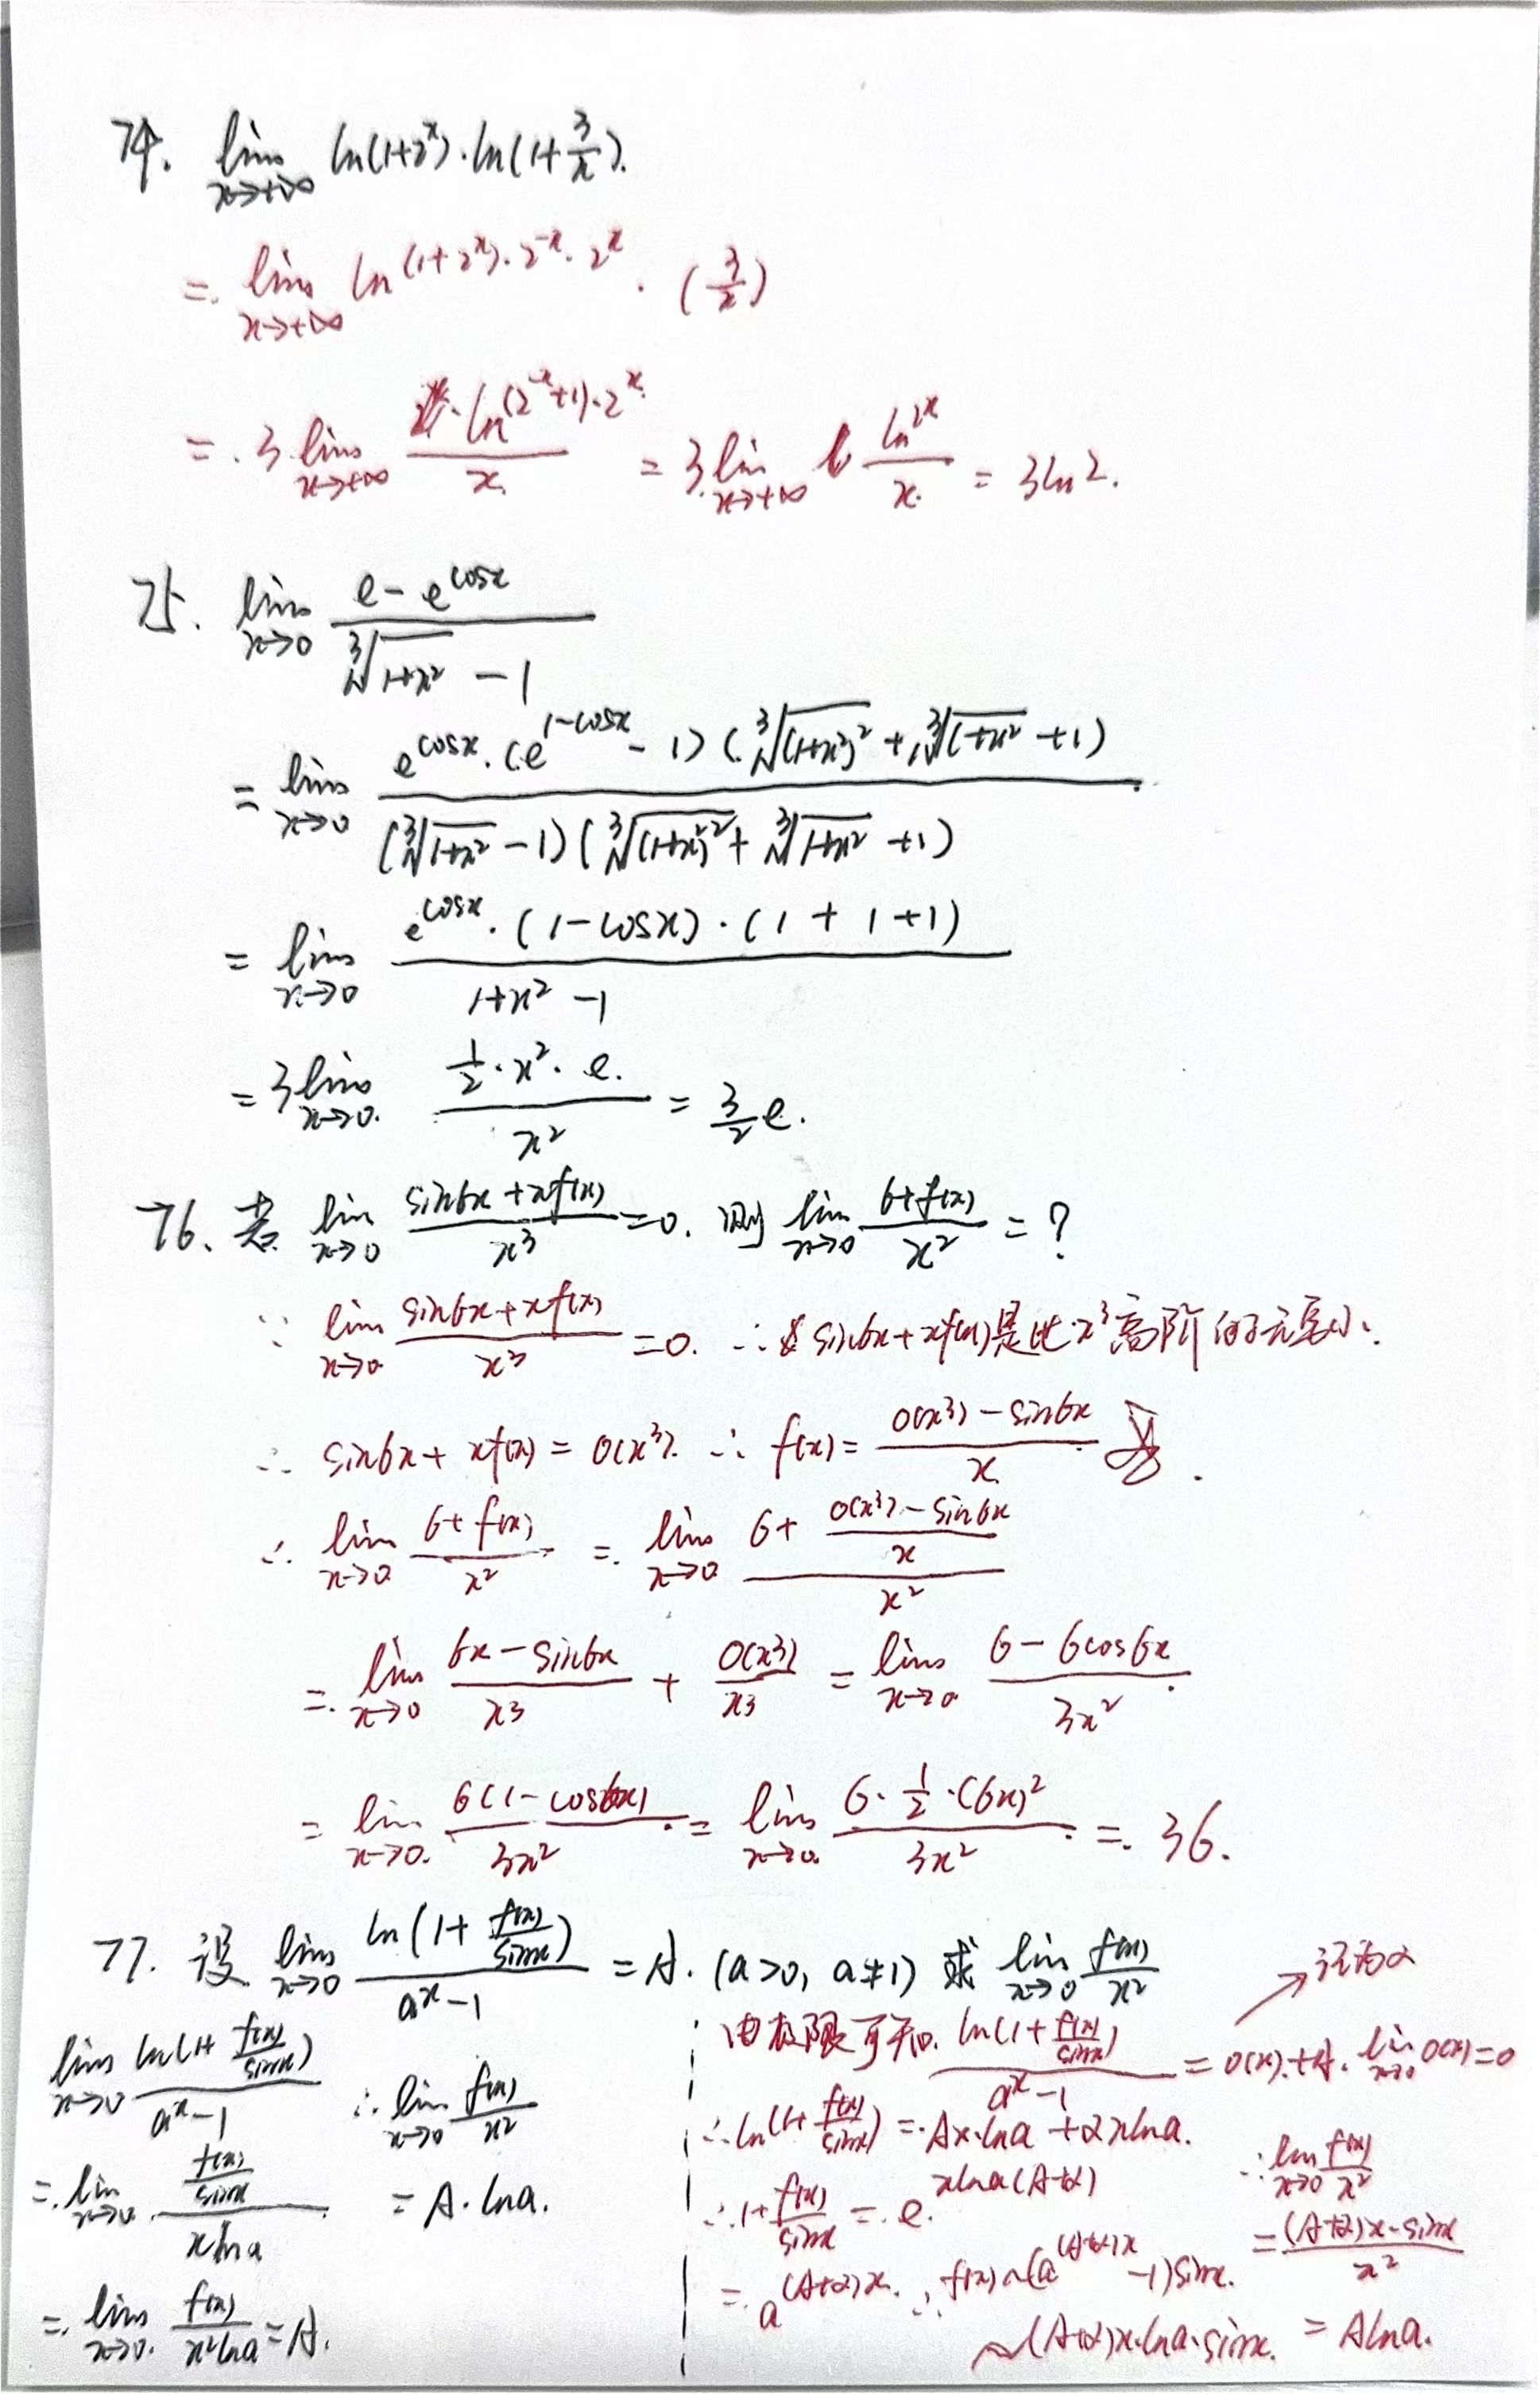 74. lim_{x→+∞} ln(1+2^x)·ln(1+3/x).
=. lim_{x→+∞} ln^{(1+2^x)·2^{-x}·2^x} · (3/x)
=. 3 lim_{x→+∞} ln^{(2^{-x}+1)·2^x}/x. = 3 lim_{x→+∞} ln2^x/x. = 3ln2.
75. lim_{x→0} (e-e^{cosx})/(∛(1+x²) -1)
= lim_{x→0} e^{cosx}·(e^{1-cosx}-1)(∛(1+x²)²+∛(1+x²)+1)/(∛(1+x²)-1)(∛(1+x²)²+∛(1+x²)+1)
= lim_{x→0} e^{cosx}·(1-cosx)·(1+1+1)/(1+x²-1)
= 3 lim_{x→0.} (1/2·x²·e.)/x² = 3/2 e.
76. 若 lim_{x→0} (sin6x+xf(x))/x³=0. 则 lim_{x→0} (6+f(x))/x² = ?
∵ lim_{x→0} (sin6x+xf(x))/x³=0. ∴ sin6x+xf(x)是比x³高阶的无穷小.
∴ sin6x+xf(x) = o(x³). ∴ f(x) = (o(x³)-sin6x)/x.
∴ lim_{x→0} (6+f(x))/x² =. lim_{x→0} (6+(o(x³)-sin6x)/x)/x²
=. lim_{x→0} (6x-sin6x)/x³ + o(x³)/x³ = lim_{x→0} (6-6cos6x)/3x².
= lim_{x→0.} 6(1-cos6x)/3x² = lim_{x→0.} 6·1/2·(6x)²/3x² =. 36.
77. 设 lim_{x→0} ln(1+f(x)/sinx)/(a^x-1) = A. (a>0, a≠1) 求 lim_{x→0} f(x)/x²
lim_{x→0} ln(1+f(x)/sinx)/(a^x-1)
=. lim_{x→0} (f(x)/sinx)/(xlna)
=. lim_{x→0.} f(x)/(x²lna) = A.
∴ lim_{x→0} f(x)/x²
= A·lna.
由极限可知. ln(1+f(x)/sinx)/(a^x-1) = o(x)+A. lim_{x→0} o(x)=0
→记为α
∴ ln(1+f(x)/sinx) =. Ax·lna+αxlna.
∴ 1+f(x)/sinx =. e^{xlna(A+α)}
=. a^{(A+α)x}. ∴ f(x)~(a^{(A+α)x}-1)sinx.
~(A+α)x·lna·sinx.
∴ lim_{x→0} f(x)/x²
= (A+α)x·sinx/x²
= Alna.